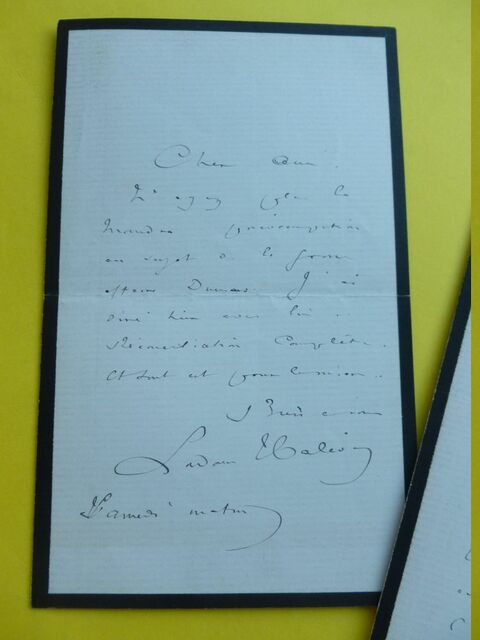 Cher ami.
N'ayez plus la
moindre préoccupation
au sujet de la grosse
affaire Dumas. J'ai
diné hier avec lui..
Réconciliation complète.
Et tout est pour le mieux..
à vous
Ludovic Halévy
Samedi matin